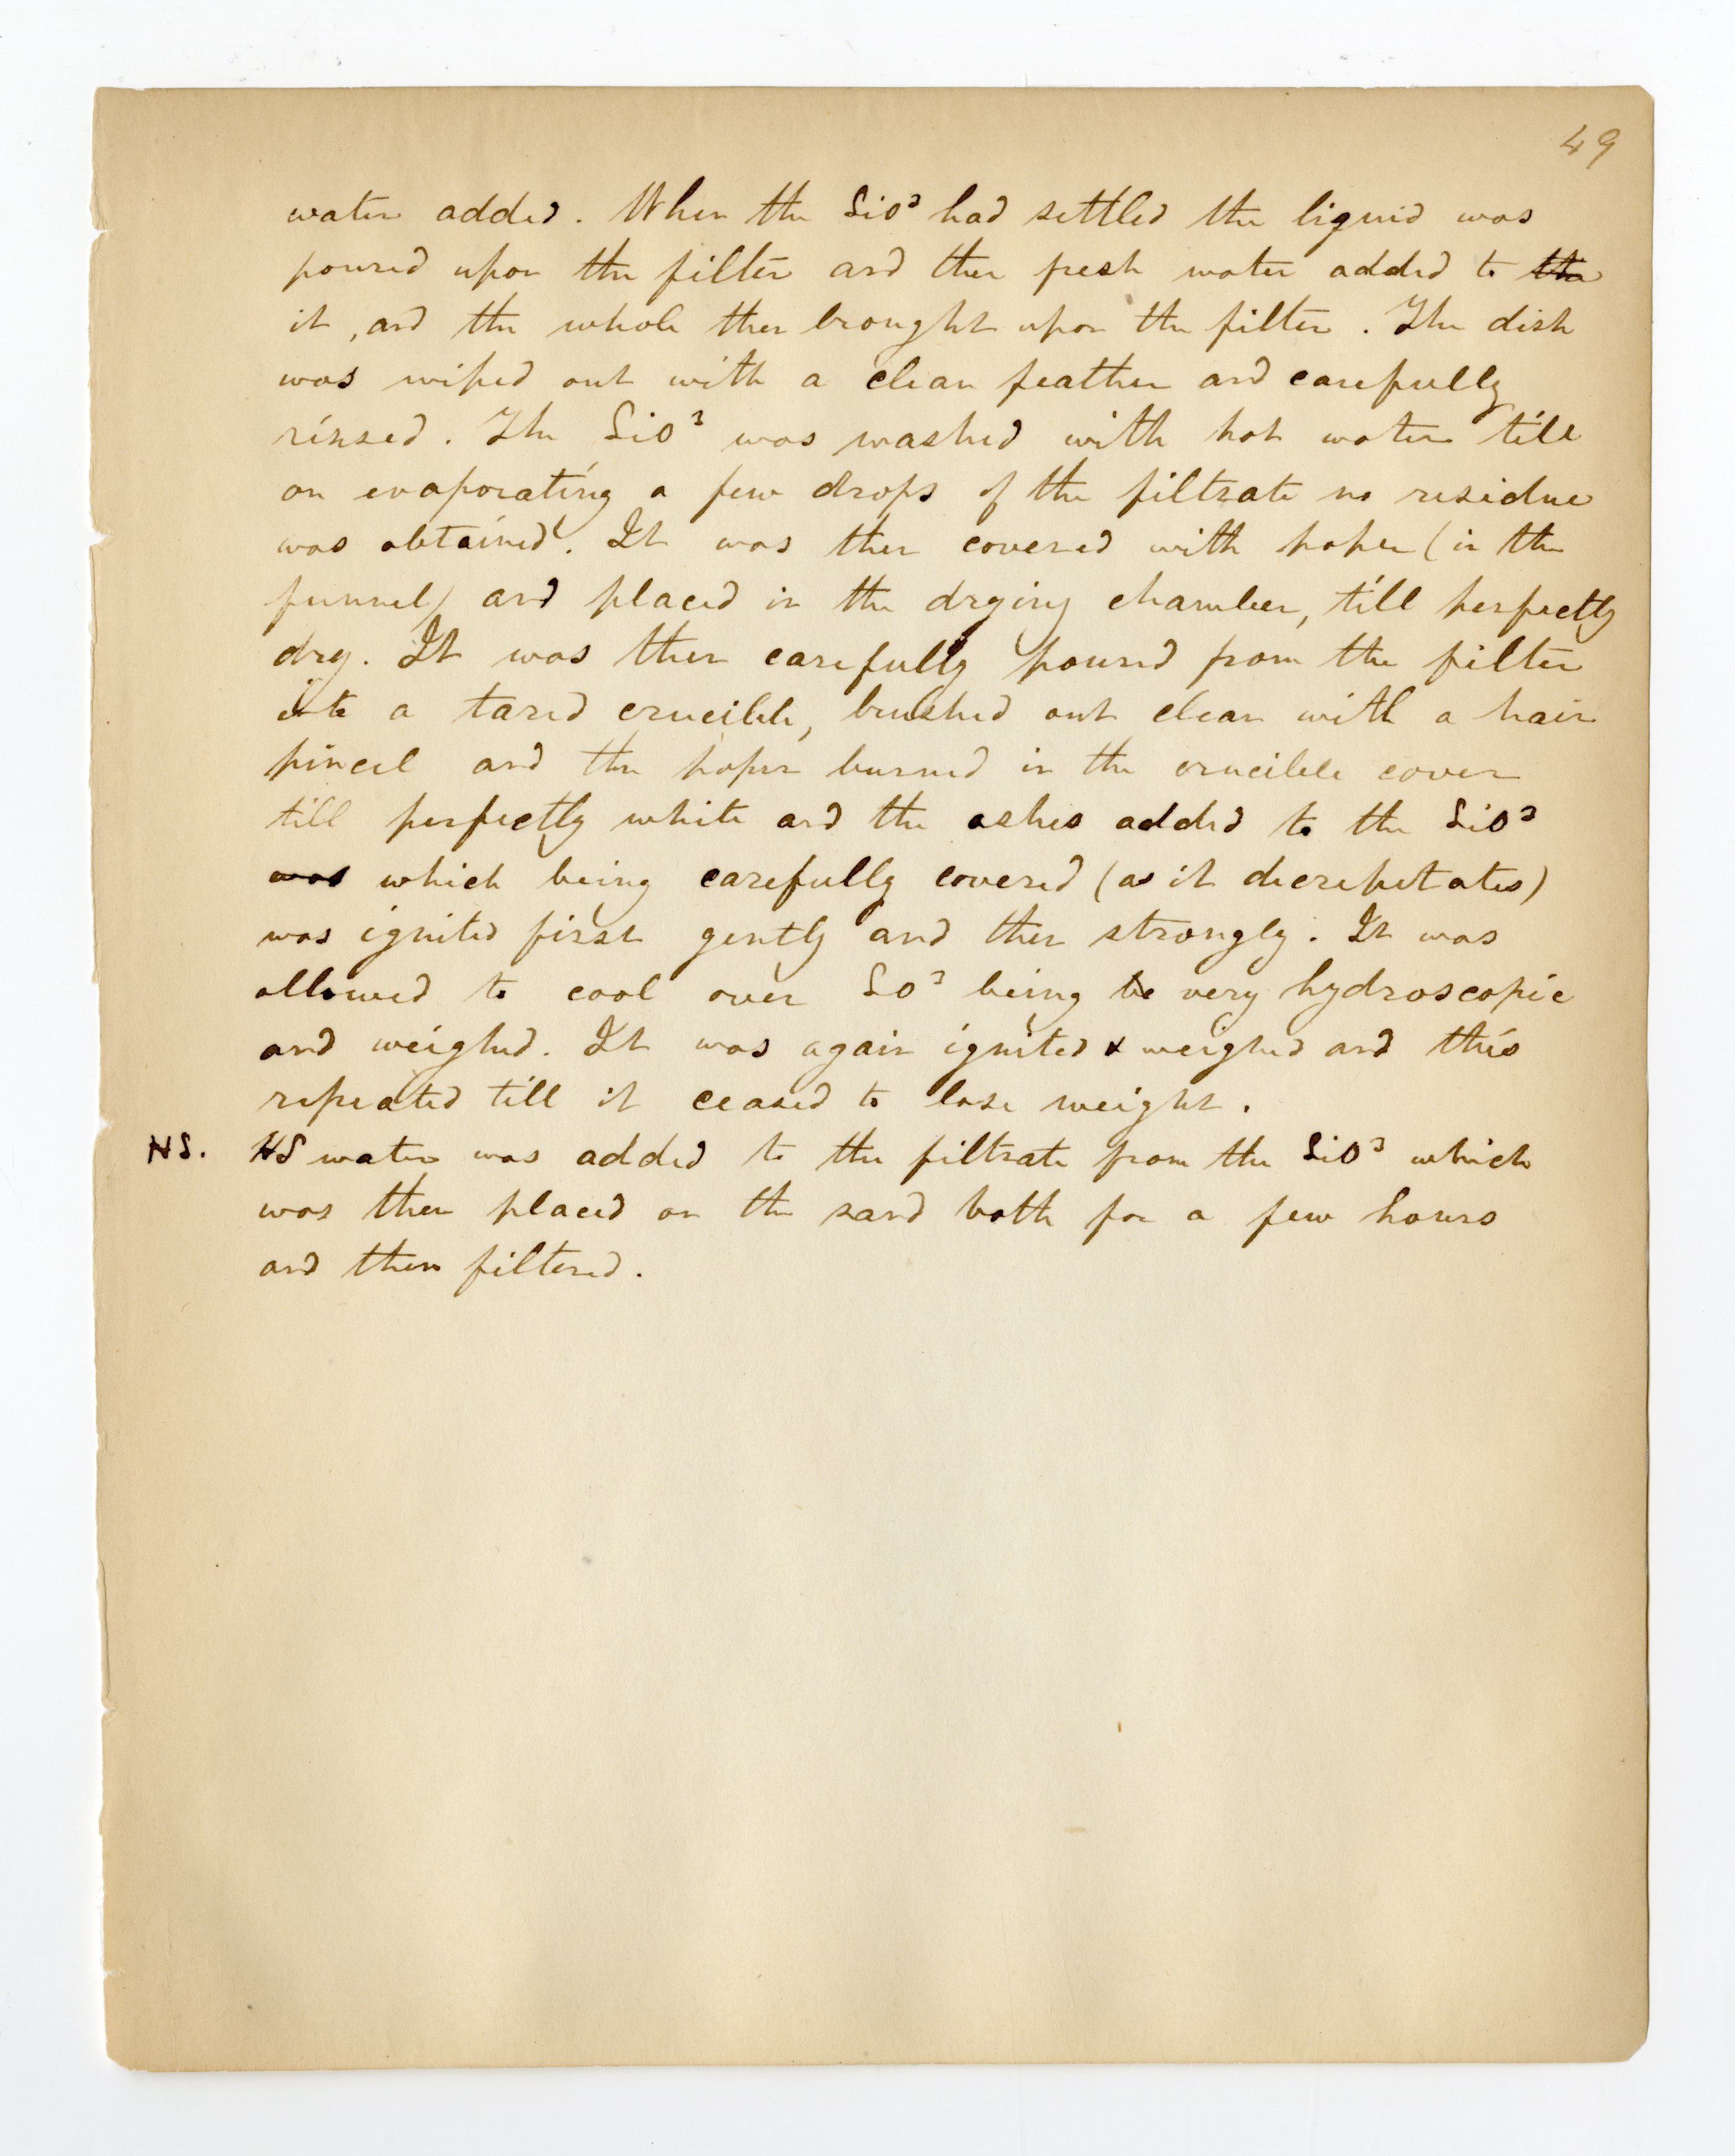 49
water added. When the SiO³ had settled the liquid was
poured upon the filter and then fresh water added to the
it, and the whole then brought upon the filter. The dish
was wiped out with a clean feather and carefully
rinsed. The SiO³ was washed with hot water till
on evaporating a few drops of the filtrate no residue
was obtained. It was then covered with paper (in the
funnel) and placed in the drying chamber, till perfectly
dry. It was then carefully poured from the filter
into a tared crucible, brushed out clean with a hair
pincel and the paper burned in the crucible cover
till perfectly white and the ashes added to the SiO³
was which being carefully covered (as it decrepitates)
was ignited first gently and then strongly. It was
allowed to cool over SO³ being be very hydroscopic
and weighed. It was again ignited & weighed and this
repeated till it ceased to lose weight.
HS. HS water was added to the filtrate from the SiO³ which
was then placed on the sand bath for a few hours
and then filtered.